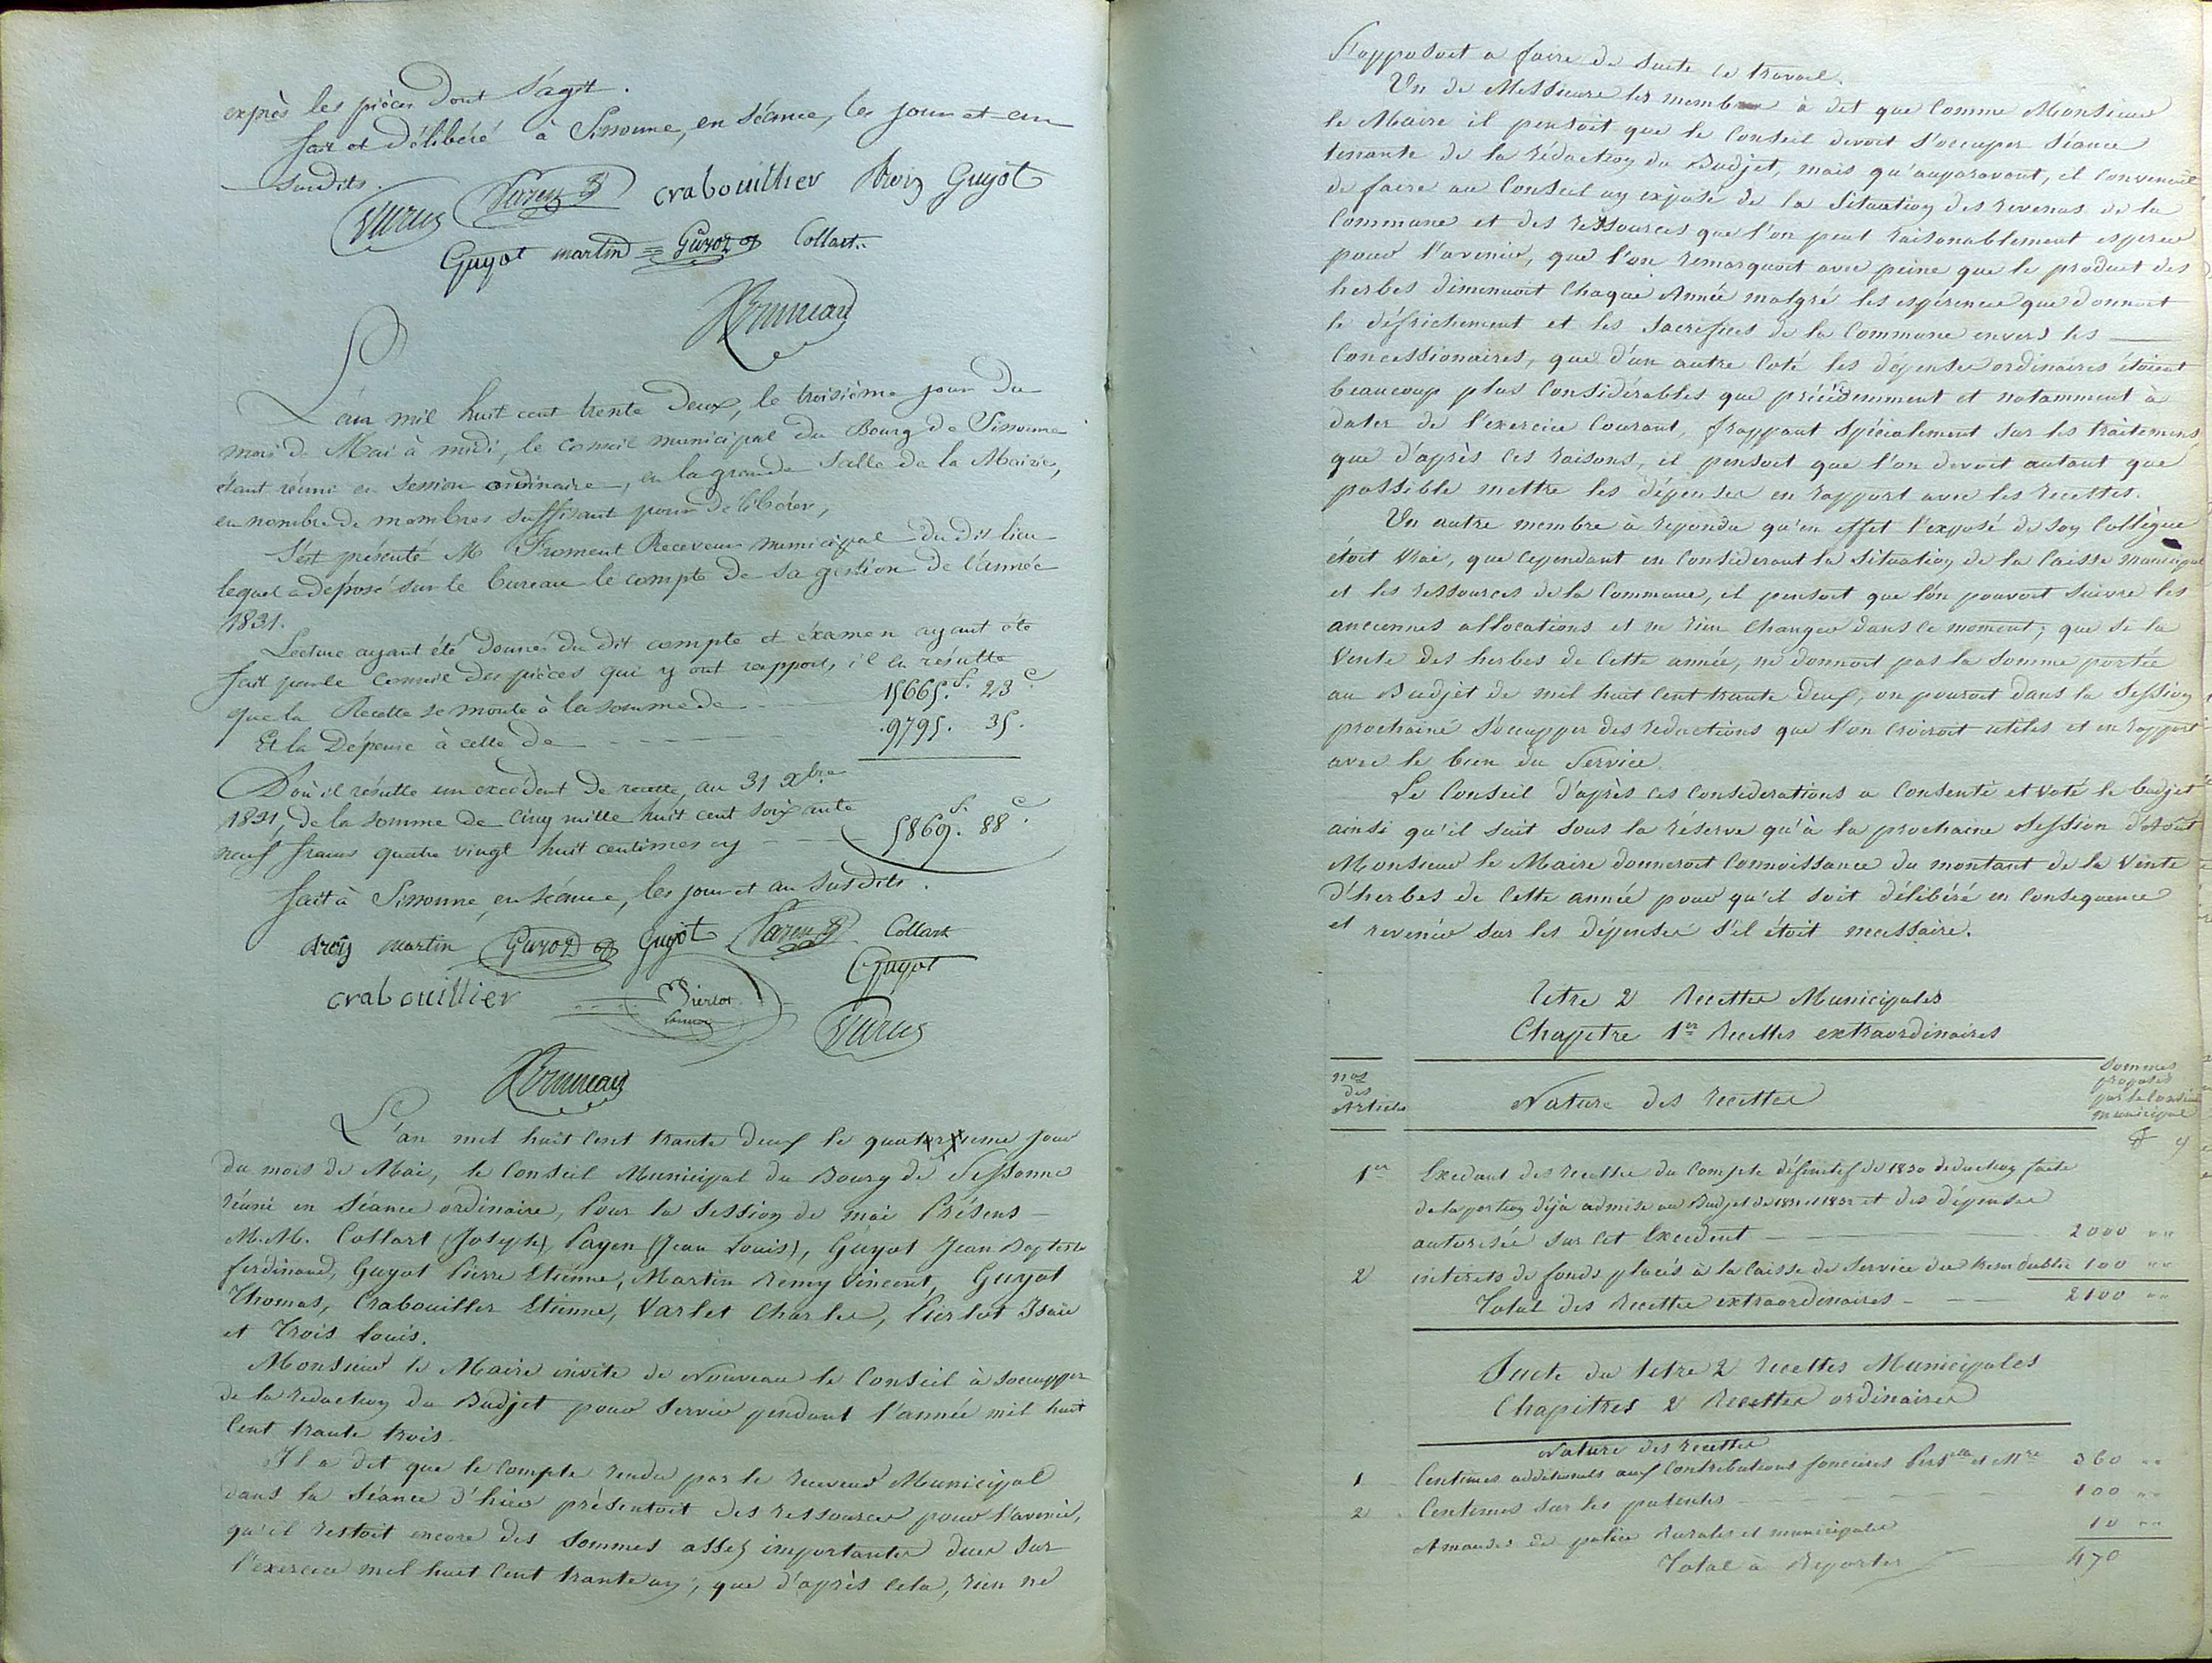 exprès les pièces dont s'agit.
fait et délibéré à Sissonne, en séance, les jour et an
susdits.
crabouillier trois Guyot
Guyot martin Guyot Collart
L'an mil huit cent trente deux, le troisième jour du
mois de Mai à midi, le conseil municipal du Bourg de Sissonne
étant réuni en Session ordinaire, en la grande Salle de la Mairie,
en nombre de membres suffisant pour délibérer,
S'est présenté Mr Froment Receveur municipal du dit lieu
lequel a déposé sur le bureau le compte de sa gestion de l'année
1831.
Lecture ayant été donnée du dit compte et éxamen ayant été
fait par le conseil des pièces qui y ont rapport, il en résulte
que la Recette se monte à la somme de 15665.f. 23 c.
Et la Dépense à celle de 9795. 35.
D'où il résulte un excédent de recette, au 31 Xbre
1831, de la somme de cinq mille huit cent soixante
neuf francs quatre vingt huit centimes cy 5869.f. 88 c.
fait à Sissonne, en séance, les jour et an susdits.
trois martin Guyot Guyot Collart
crabouillier Pierlot Guyot
L'an mil huit cent trante deux le quatrieme jour
du mois de Mai, le Conseil Municipal du Bourg de Sissonne
réuni en Séance ordinaire, Pour la Session de mai Présens
M.M. Collart (Joseph), Payen (Jean Louis), Guyot Jean Baptiste
ferdinand, Guyot Pierre Etienne, Martin Remy Vincent, Guyot
Thomas, Crabouiller Etienne, Varlet Charles, Pierlot Isaïe
et Trois Louis.
Monsieur le Maire invite de Nouveau le Conseil à s'occupper
de la redaction du Budjet pour servir pendant l'année mil huit
cent trante trois.
Il a dit que le compte rendu par le receveur Municipal
dans la Séance d'hier présentoit des ressources pour l'avenir,
qu'il restoit encore des sommes assez importantes dues sur
l'exercice mil huit cent trante un, que d'après cela, rien ne
S'opposoit a faire de suite ce travail.
Un de Messieurs les membres à dit que comme Monsieur
le Maire il pensoit que le Conseil devoit s'occuper Séance
tenante de la rédaction du Budjet, mais qu'auparavant, il convenoit
de faire au Conseil un exposé de la Situation des revenus de la
Commune et des ressources que l'on peut raisonablement esperer
pour l'avenir, que l'on remarquoit avec peine que le produit des
herbes diminuoit Chaque Année malgré les espérence que donnoit
le défrichement et les sacrifices de la Commune envers les
Concessionaires, que d'un autre Coté les dépenses ordinaires étoient
beaucoup plus Considérables que précédemment et notamment à
dater de l'éxercice Courant, frappant Spécialement sur les traitemens
que d'après ces raisons, il pensoit que l'on devoit autant que
possible mettre les dépenses en rapport avec les recettes.
Un autre membre à repondu qu'en effet l'exposé de son Collègue
étoit vrai, que cependant en considerant la Situation de la Caisse municipal
et les ressources de la Commune, il pensoit que l'on pouvoit suivre les
anciennes allocations et ne rien changer dans ce moment; que si la
Vente des herbes de Cette année, ne donnoit pas la somme portée
au Budjet de mil huit Cent trante deux, on pouroit dans la Session
prochaine s'occupper des reductions que l'on croiroit utiles et en rapport
avec le bien du Service.
Le Conseil d'après ces Considerations a Consenti et voté le budjet
ainsi qu'il suit sous la réserve qu'à la prochaine Session d'Août
Monsieur le Maire donneroit Connoissance du montant de la Vente
d'herbes de Cette année pour qu'il soit délibéré en Consequence
et revenir sur les dépenses s'il étoit necessaire.
Titre 2 Recettes Municipales
Chapitre 1er Recettes extraordinaires
nos des Articles
Nature des Recettes
Sommes proposées par le Conseil municipal
1er Excédant des recettes du Compte définitif de 1830 deduction faite
de la portion déjà admise au Budjet de 1831 et 1832 et des dépenses
autorisées sur cet Excédent 2000 " "
2 interets de fonds placés à la Caisse de Service du tresor public 100 " "
Total des Recettes extraordinaires 2100 " "
Suite du titre 2 Recettes Municipales
Chapitres 2 Recettes ordinaires
Nature des Recettes
1 Centimes additionels aux Contributions foncieres Persелle et Mre 360 " "
2 Centimes sur les patentes 100 " "
Amandes de police Rurales et municipales 10 " "
Total à Reporter 470